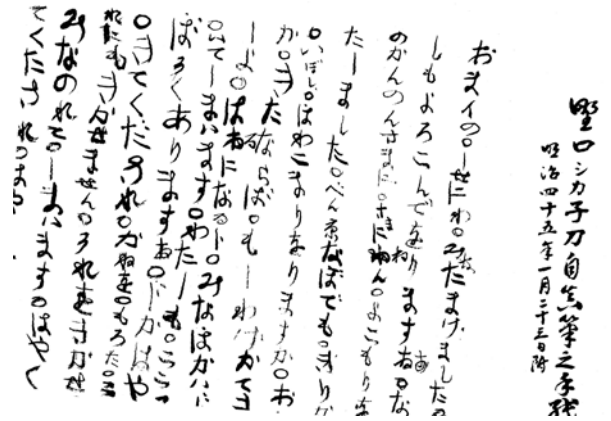 野口シカ子刀自真筆之手紙
明治四十五年一月二十三日附
おまイの○しせにわ○みなたまけました○
しもよろこんでをりまする○な
のかんのんさまに○さまにねん○よこもりを
たしました○べん京なぼでも○きりか
○いぼし○ほわこまりをりますか○お
か○きたならば○もしわけかてき
しよ○はるになるト○みなほかいに
○いてしまいます○わたしも○ここ
ぼそくありまする○ドかはや
○きてくだされ○かねを○もろた○こ
れにもきかせません○それをきかせ
みなのれて○しまいます○はやく
てくたされ○はや